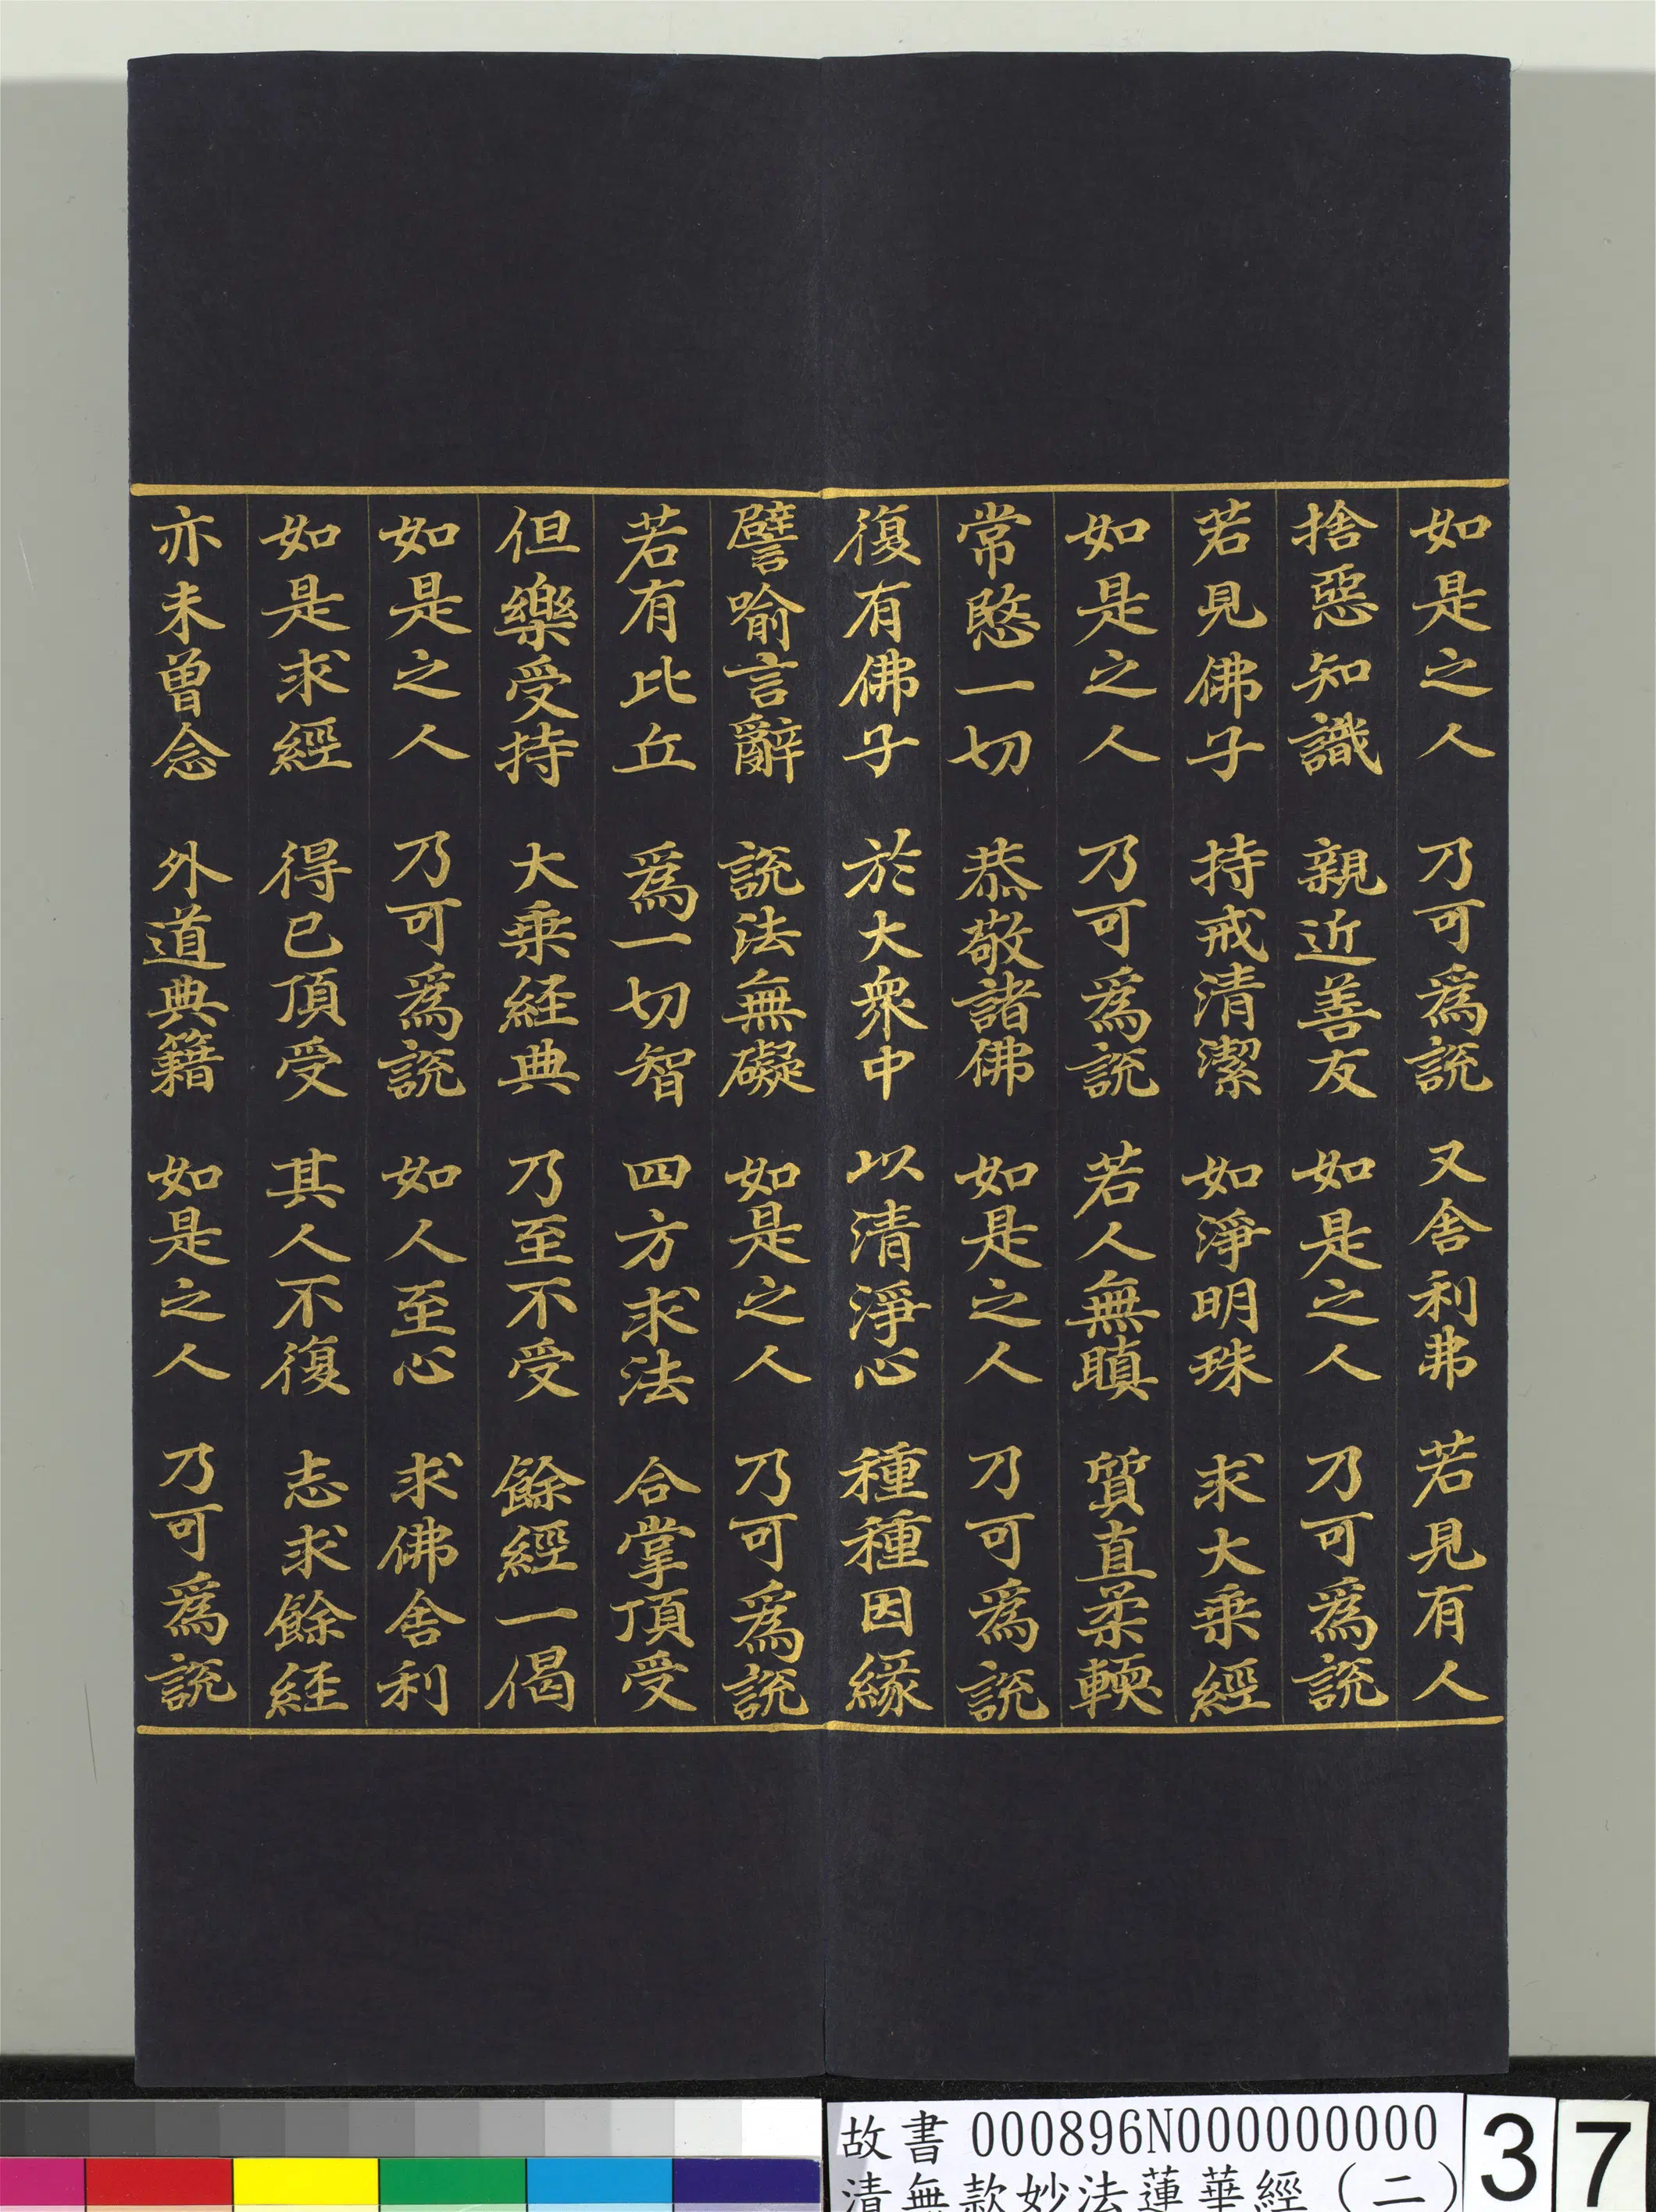 如是之人 乃可爲說 又舍利弗 若見有人
捨惡知識 親近善友 如是之人 乃可爲說
若見佛子 持戒清潔 如淨明珠 求大乗經
如是之人 乃可爲說 若人無瞋 質直柔輭
常愍一切 恭敬諸佛 如是之人 乃可爲說
復有佛子 於大衆中 以清淨心 種種因縁
譬喻言辭 說法無礙 如是之人 乃可爲說
若有比丘 爲一切智 四方求法 合掌頂受
但樂受持 大乗経典 乃至不受 餘經一偈
如是之人 乃可爲說 如人至心 求佛舍利
如是求經 得已頂受 其人不復 志求餘経
亦未曾念 外道典籍 如是之人 乃可爲說
故書 000896N000000000
清無款妙法蓮華經(二)
37